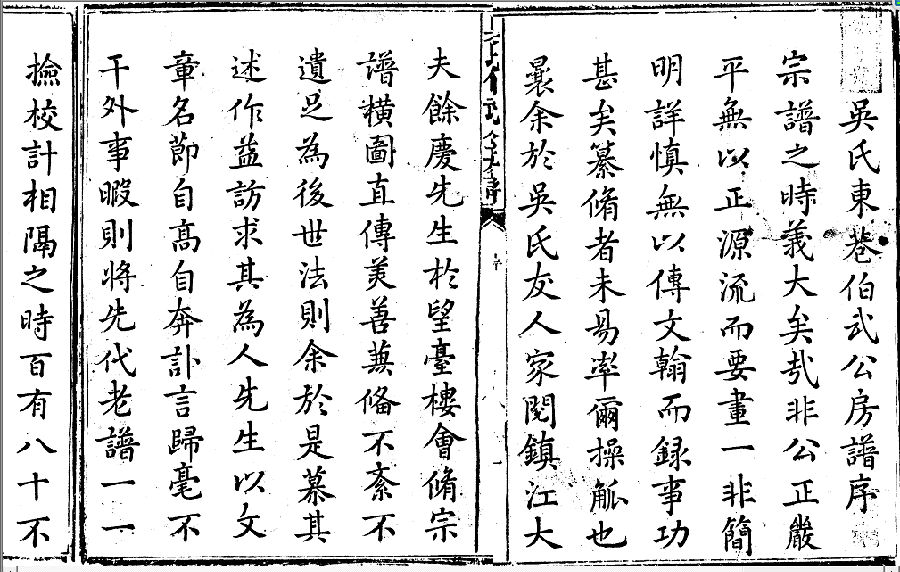 吳氏東巷伯武公房譜序
宗譜之時義大矣哉非公正嚴
平無以正源流而要畫一非簡
明詳慎無以傳文翰而録事功
甚矣纂脩者未易率爾操觚也
曩余於吳氏友人家閱鎮江大
夫餘慶先生於望臺樓會脩宗
譜橫圖直傳美善蕪俻不紊不
遺足為後世法則余於是慕其
述作益訪求其為人先生以文
章名節自高自奔訃言歸毫不
干外事暇則将先代老譜一一
撿校計相隔之時百有八十不